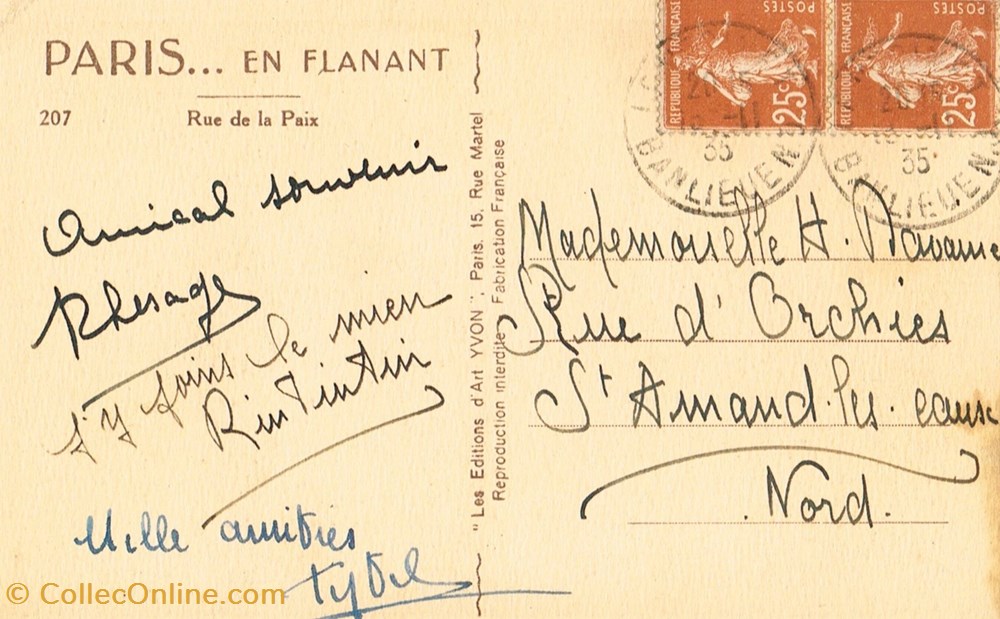 PARIS... EN FLANANT
207 Rue de la Paix
Amical souvenir
j'y joins le mien
RinTinTin
Mille amitiés
"Les Editions d'Art YVON", Paris, 15, Rue Martel
Reproduction interdite Fabrication Française
POSTES
REPUBLIQUE FRANÇAISE
25c
POSTES
REPUBLIQUE FRANÇAISE
25c
35
BANLIEUE N
35
BANLIEUE N
Mademoiselle H.
Rue d'Orchies
St Amand-les-eaux
Nord.
© CollecOnline.com